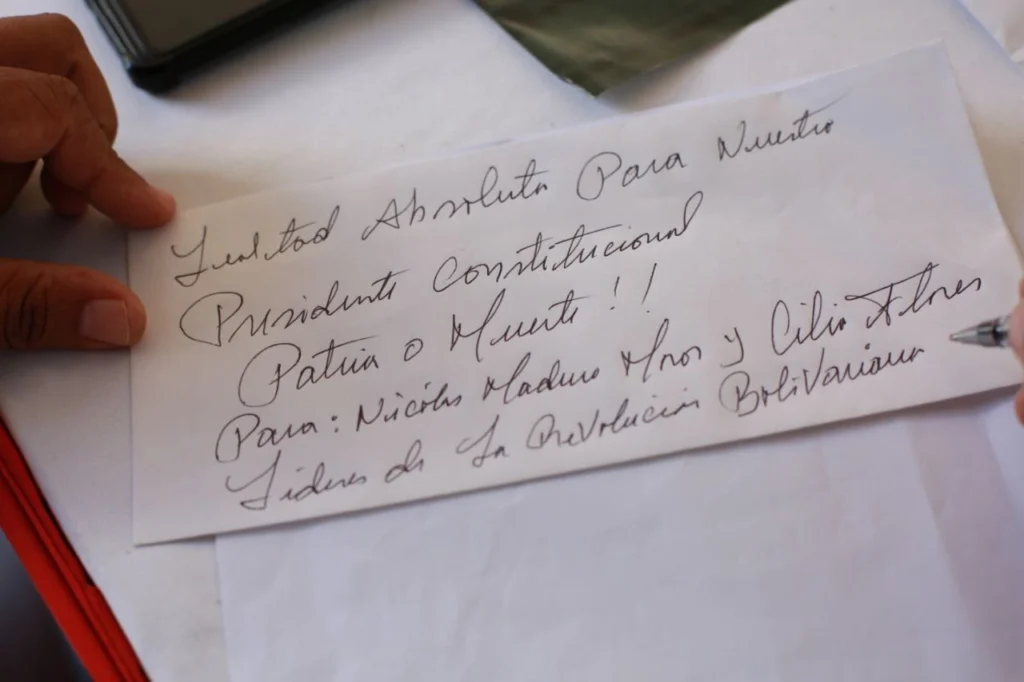 Lealtad Absoluta Para Nuestro
Presidente Constitucional
Patria o Muerte!!
Para: Nicolás Maduro Moros y Cilia Flores
Lideres de La Revolución Bolivariana